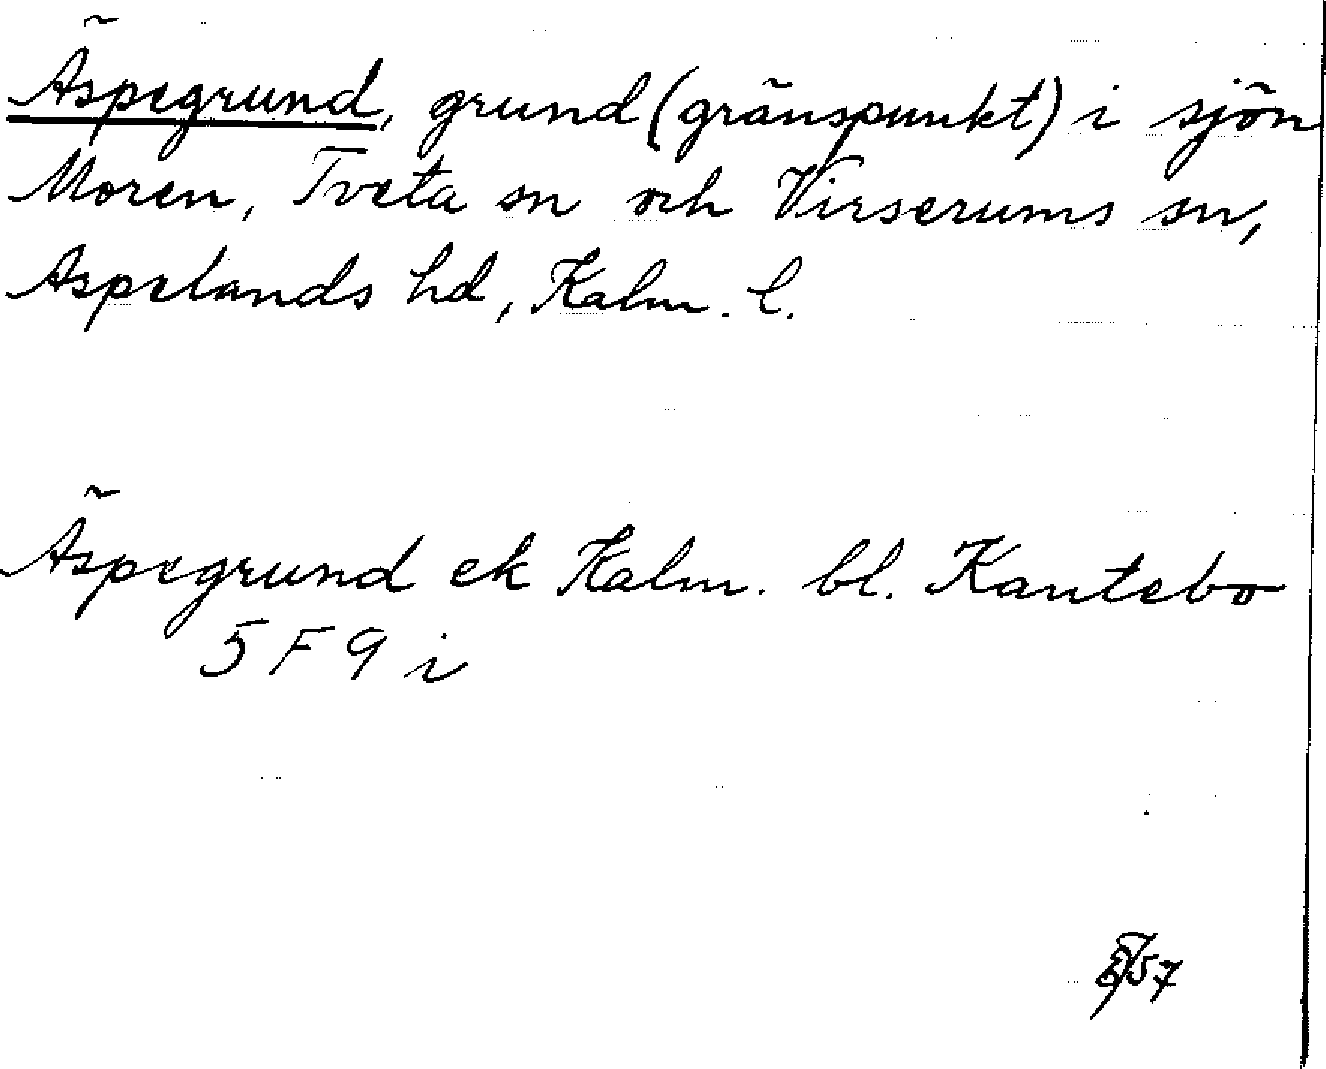 Äspegrund, grund (gränspunkt) i sjön
Moren, Tveta sn och Virserums sn,
Aspelands hd, Kalm. l.
Äspegrund ek Kalm. bl. Kantebo
5 F 9 i
57